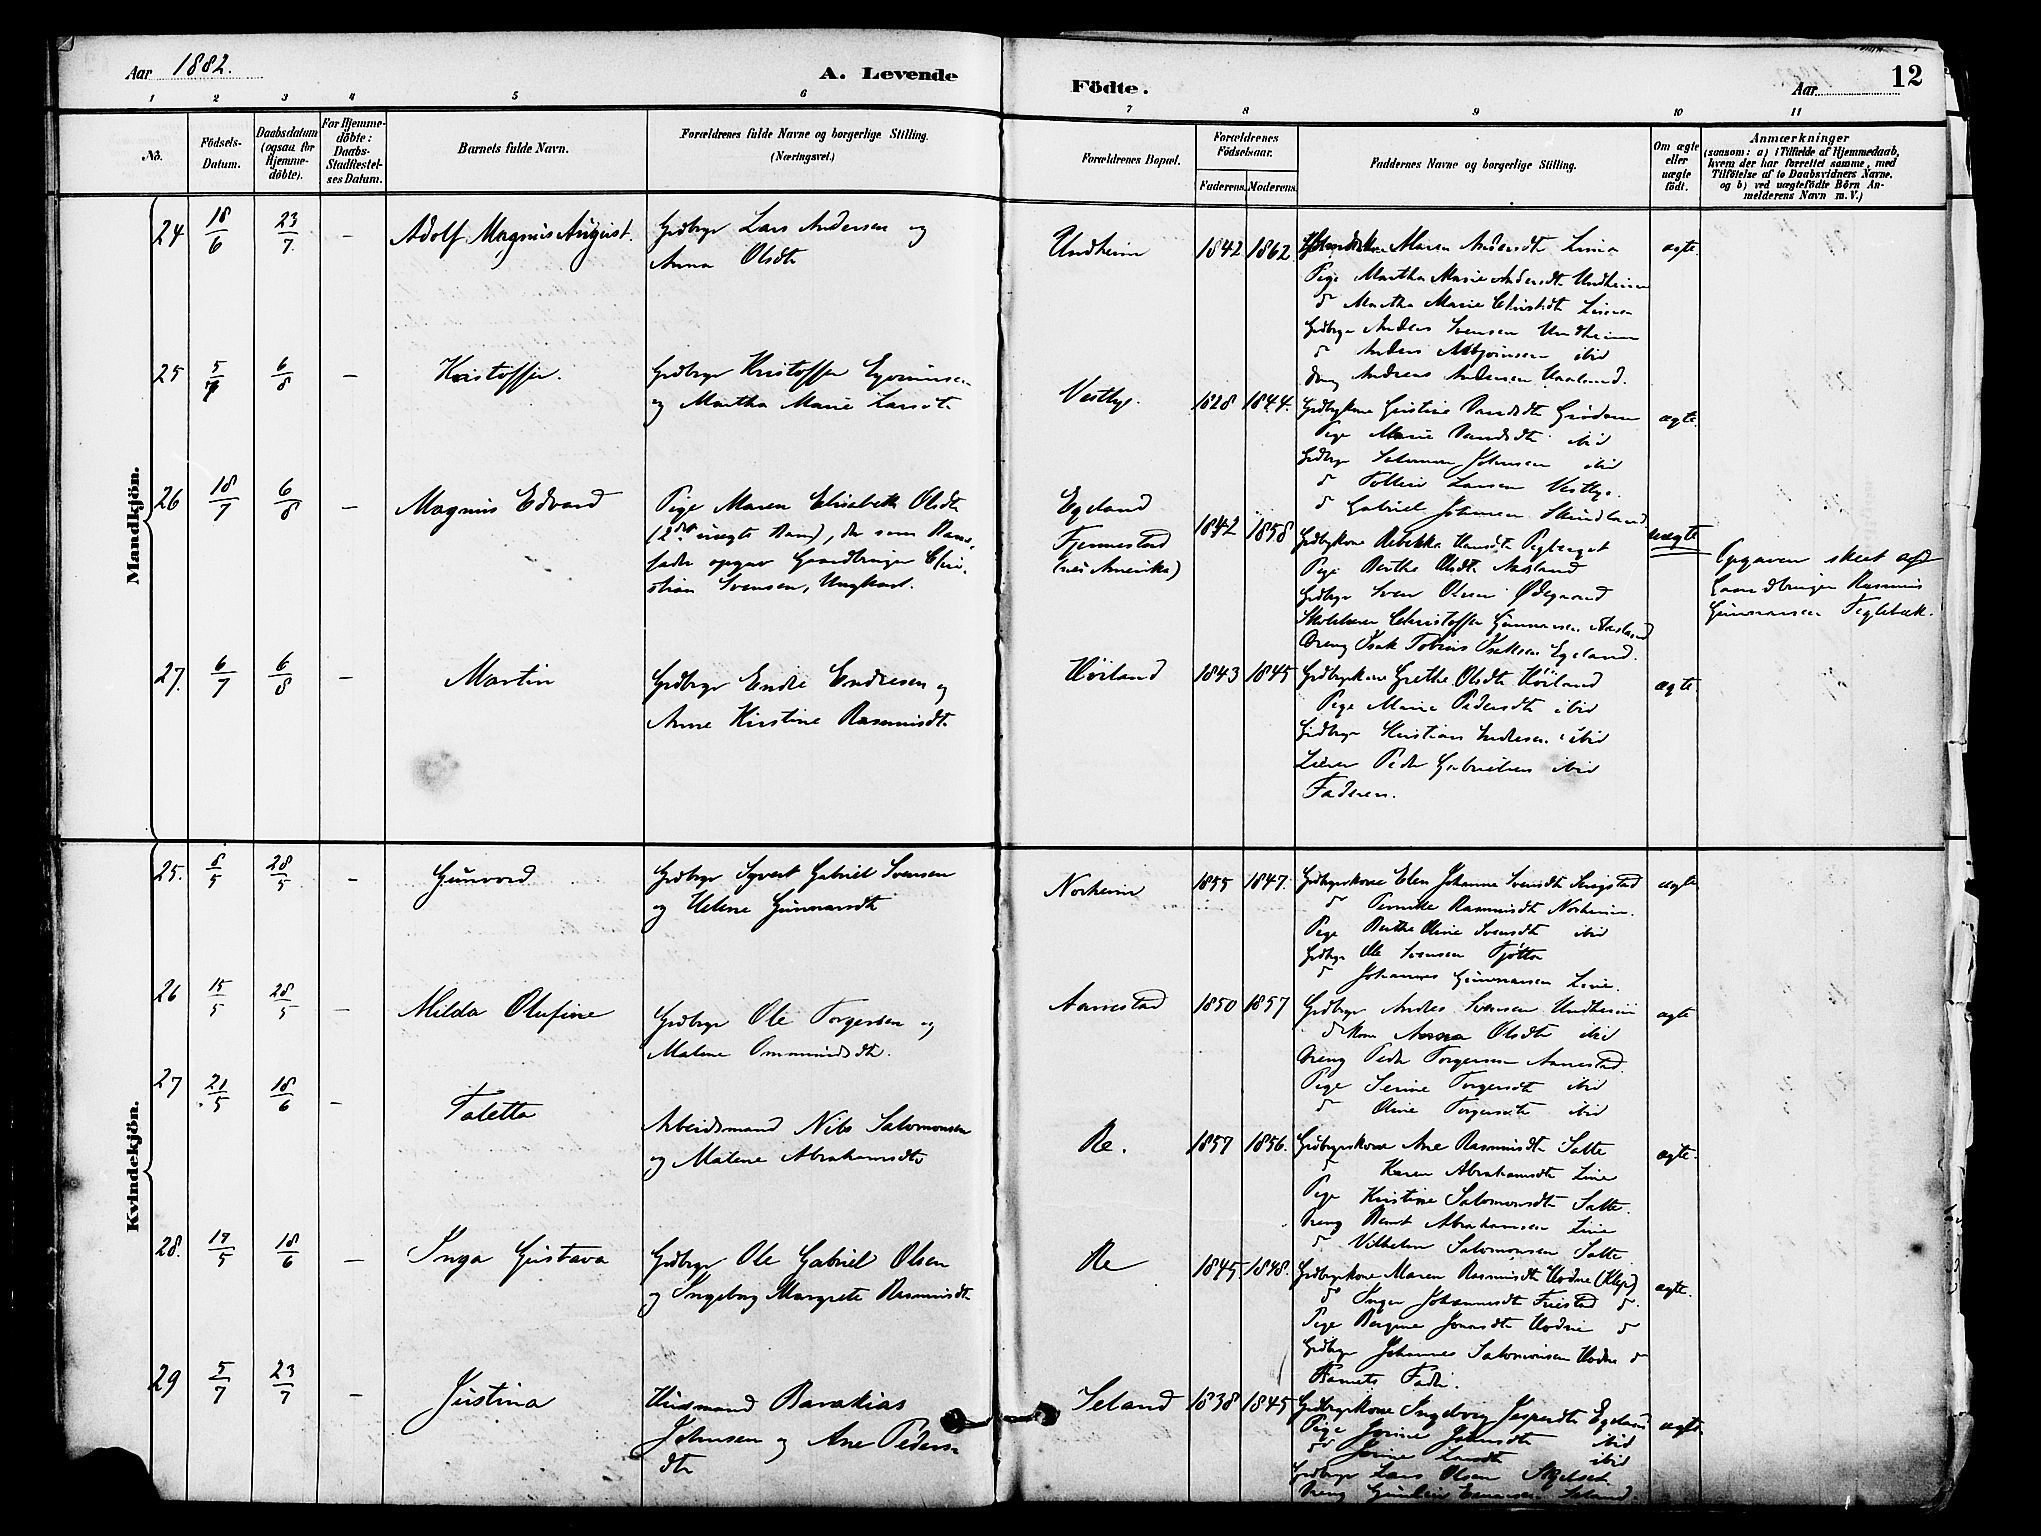 Aar 1882.
A. Levende
Födte.
Aar
12
1 2 3 4 5 6 7 8 9 10 11
No.
Födsels-Datum.
Daabsdatum (ogsaa for Hjemme-döbte).
For Hjemme-döbte: Daabs-Stadfæstel-ses Datum.
Barnets fulde Navn.
Forældrenes fulde Navne og borgerlige Stilling. (Næringsvei.)
Forældrenes Bopæl.
Forældrenes Födselsaar.
Faderens. Moderens.
Faddernes Navne og borgerlige Stilling.
Om ægte eller uægte födt.
Anmærkninger
(saasom: a) i Tilfælde af Hjemmedaab, hvem der har forrettet samme, med Tilföielse af to Daabsvidners Navne. og b) ved uægtefödte Börn Anmelderens Navn m. V.)
Mandkjön.
24 18/6 23/7 – Adolf Magnus August. Grdbrgr Lars Andersen og
Anna Olsdt
Undheim 1842 1862 Maren Andersdt Lima ægte.
Pige Martha Marie Andersdt Undheim
d Martha Marie Christdt Lima
Grdbrgr Anders Svensen Undheim
d Anders Asbjørnsen ibid
Dreng Andreas Andersen
25 5/7 6/8 – Kristoffer. Grdbrgr Kristoffer
og Martha Marie Larsdt
Vestbye. 1828 1844. Grdbrgkone ægte.
Pige Marie ibid
Grdbrgr Salomon Johnsen ibid
d Larsen Vestbye.
d Gabriel Johnsen
26 18/7 6/8 – Magnus Edvard Pige Maren Elisabeth Olsdt
(2det uægte Barn), der som Barne-
fader opgav Gaardbruger Chri-
stian Svensen, Ungkarl.
Egeland
Fjermestad
(nu Amerika)
1842 1858 Grdbrgkone Rebekka Hansdt uægte
Pige Berthe Olsdt Aasland
Grdbrgr Sven Olsen Ødegaard
Skolelærer Christoffer Gunnarsen Aasland
Dreng Isak Tobias Isaksen Egeland.
Opgaven skeet af
Gaardbruger Rasmus
Gunnarsen Teglebæk.
27. 6/7 6/8 – Martin Grdbrgr Endre Endresen og
Anne Kirstine Rasmusdt
Høiland 1843 1845 Grdbrgkone Grethe Olsdt Høiland ægte.
Pige Marie Pedersdt ibid
Grdbrgr Kristian Endresen ibid
Peder Gabrielsen ibid
Faderen.
Kvindekjön.
25. 6/5 28/5 – Gunvord Grdbrgr Syvert Gabriel Svensen
og Helene Gunnarsdt
Norheim 1855 1847. Grdbrgerkone Elen Johanne Svendsdt ægte
d Pernille Rasmusdt Norheim.
Pige Berthe Oline Svendsdt ibid
Grdbrgr Ole Svensen Tjøtta
d Johannes Gunnarsen Line.
26 15/5 28/5 – Milda Olufine Grdbrgr Ole Torgersen og
Malene Ommundsdt.
Aanestad 1850 1857 Grdbrgr Anders Svensen Undheim ægte
d kone Anna Olsdt ibid
Dreng Peder Torgersen Aanestad.
Pige Serine Torgersdt ibid
d Oline Torgersdt ibid
27 21/5 18/6 – Taletta Arbeidsmand Nils Salomonsen
og Malene Abrahamsdt
Re. 1857 1856. Grdbrgerkone Ane Rasmusdt Salte ægte.
d Karen Abrahamsdt Line
Pige Kristine Salomonsdt Salte.
Dreng Bernt Abrahamsen Line
d Vilhelm Salomonsen Salte
28. 17/5 18/6 – Inga Gustava Grdbrgr Ole Gabriel Olsen
og Ingeborg Margrete Rasmusdt
Re 1845. 1848. Grdbrgerkone Maren Rasmusdt Hodne (Klep) ægte.
d Inger Johannesdt Friestad d.
Pige Bergine Jonasdt Hodne d
Grdbrgr Johannes Salomonsen Hodne d
Barnets Fader.
29 5/7 23/7 – Justina Husmand Barakias
Johnsen og Ane Peders-
dt
Seland 1838 1845 Grdbrgerkone Ingeborg Jespersdt ægte.
Pige Jorine Johnsdt ibid
d Jorine Larsdt ibid
Grdbrgr Lars Olsen
Dreng Seland.